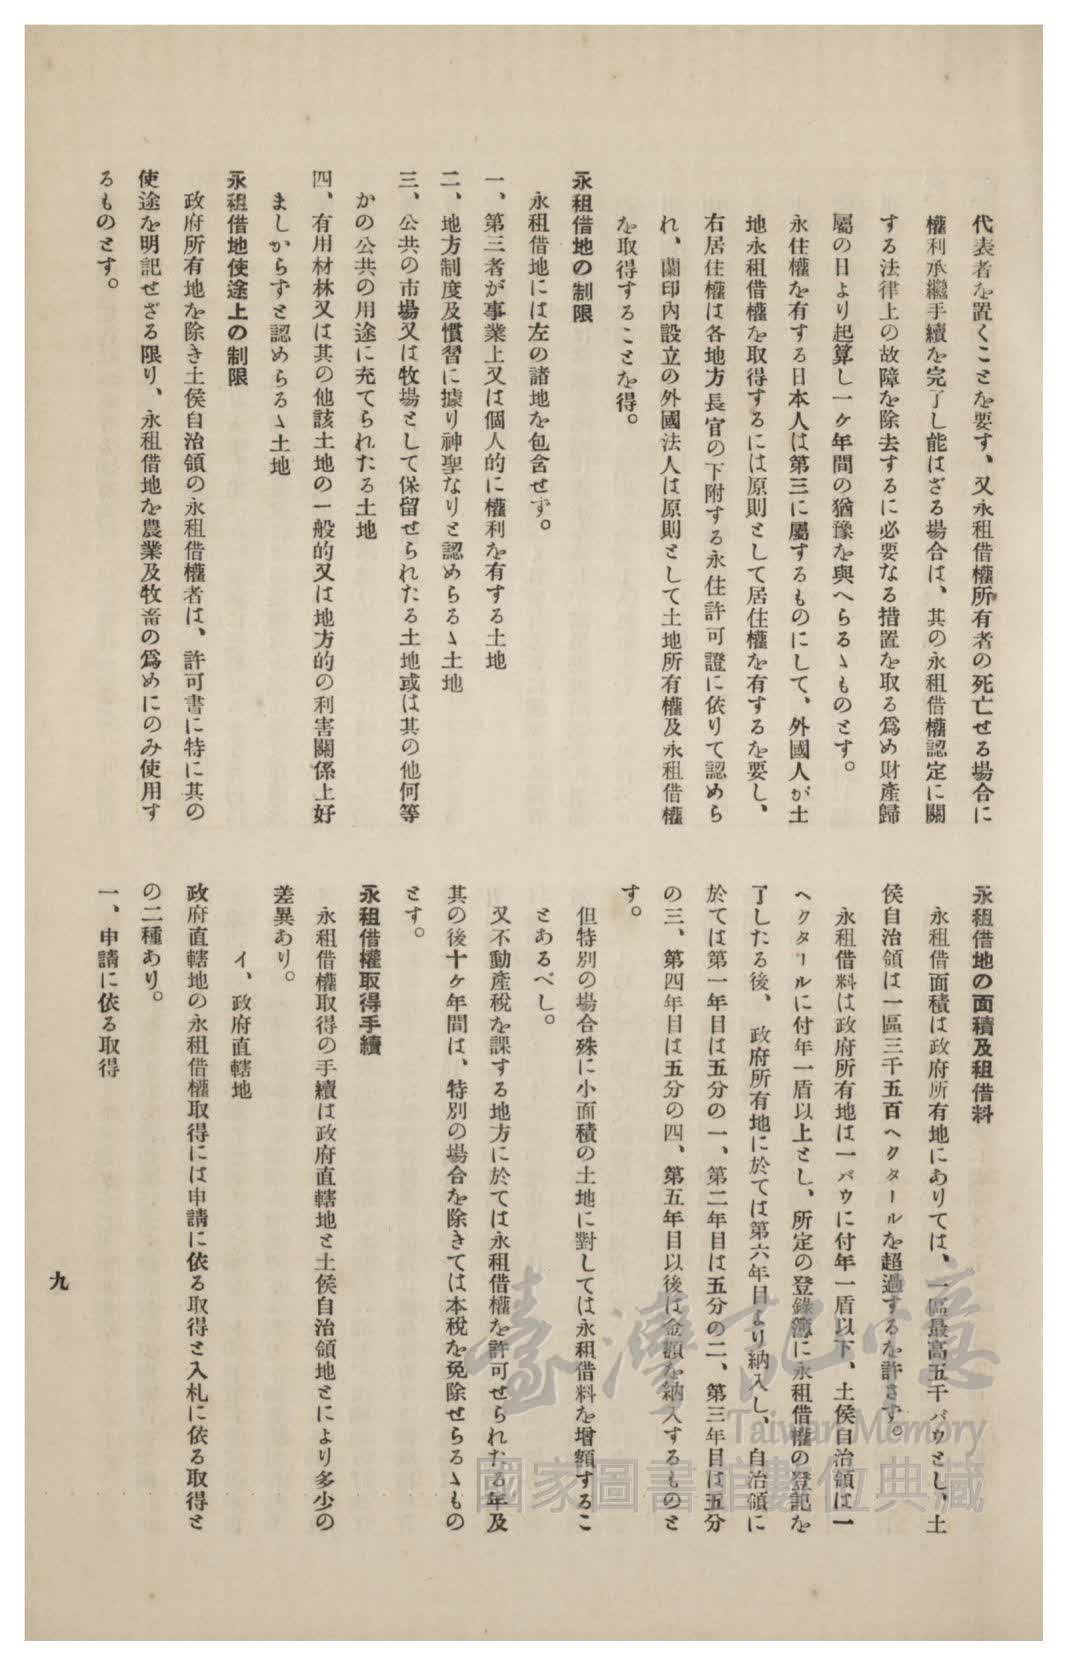 代表者を置くことを要す、又永租借權所有者の死亡せる場合に
權利承繼手續を完了し能はざる場合は、其の永租借權認定に關
する法律上の故障を除去するに必要なる措置を取る爲め財產歸
屬の日より起算し一ケ年間の猶豫を與へらるゝものとす。
永住權を有する日本人は第三に屬するものにして、外國人が土
地永租借權を取得するには原則として居住權を有するを要し、
右居住權は各地方長官の下附する永住許可證に依りて認めら
れ、蘭印內設立の外國法人は原則として土地所有權及永租借權
を取得することを得。
永租借地の制限
永租借地には左の諸地を包含せず。
一、第三者が事業上又は個人的に權利を有する土地
二、地方制度及慣習に據り神聖なりと認めらるゝ土地
三、公共の市場又は牧場として保留せられたる土地或は其の他何等
かの公共の用途に充てられたる土地
四、有用材林又は其の他該土地の一般的又は地方的の利害關係上好
ましからずと認めらるゝ土地
永租借地使途上の制限
政府所有地を除き土侯自治領の永租借權者は、許可書に特に其の
使途を明記せざる限り、永租借地を農業及牧畜の爲めにのみ使用す
るものとす。
永租借地の面積及租借料
永租借面積は政府所有地にありては、一區最高五千バウとし、土
侯自治領は一區三千五百ヘクタールを超過するを許さず。
永租借料は政府所有地は一バウに付年一盾以下、土侯自治領は一
ヘクタールに付年一盾以上とし、所定の登錄簿に永租借權の登記を
了したる後、政府所有地に於ては第六年目より納入し、自治領に
於ては第一年目は五分の一、第二年目は五分の二、第三年目は五分
の三、第四年目は五分の四、第五年目以後は金額を納入するものと
す。
但特別の場合殊に小面積の土地に對しては永租借料を增額するこ
とあるべし。
又不動產稅を課する地方に於ては永租借權を許可せられたる年及
其の後十ケ年間は、特別の場合を除きては本稅を免除せらるゝもの
とす。
永租借權取得手續
永租借權取得の手續は政府直轄地と土侯自治領地とにより多少の
差異あり。
イ、政府直轄地
政府直轄地の永租借權取得には申請に依る取得と入札に依る取得と
の二種あり。
一、申請に依る取得
九
臺灣記憶
Taiwan Memory
國家圖書館數位典藏